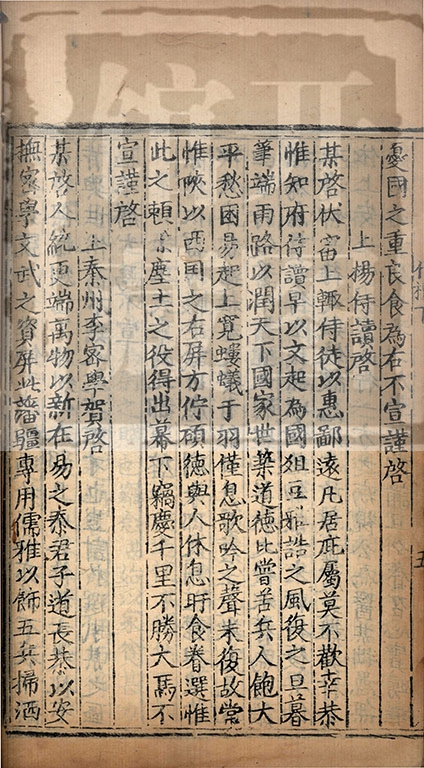 憂國之重良食為右不宣謹啓
上楊侍讀啓
某啓伏審上輟侍徒以惠鄙遠凡居庇屬莫不歡幸恭
惟知府侍讀早以文起為國俎豆雅誥之風復之旦暮
筆端雨路以潤天下國家世築道徳比嘗苦兵人飽大
平愁困易起上寛螻蟻于羽僅息歌吟之聲未復故常
惟陜以西國之右屏方佇碩德與人休息旰食眷選惟
此之賴 塵土之役得出幕下竊慶千里不勝大馬不
宣謹啓
上秦州李密學賀啓
某啓人統更端萬物以新在易之泰君子道長恭以安
撫密學文武之資屏此藩疆專用儒雅以飾五兵掃洒